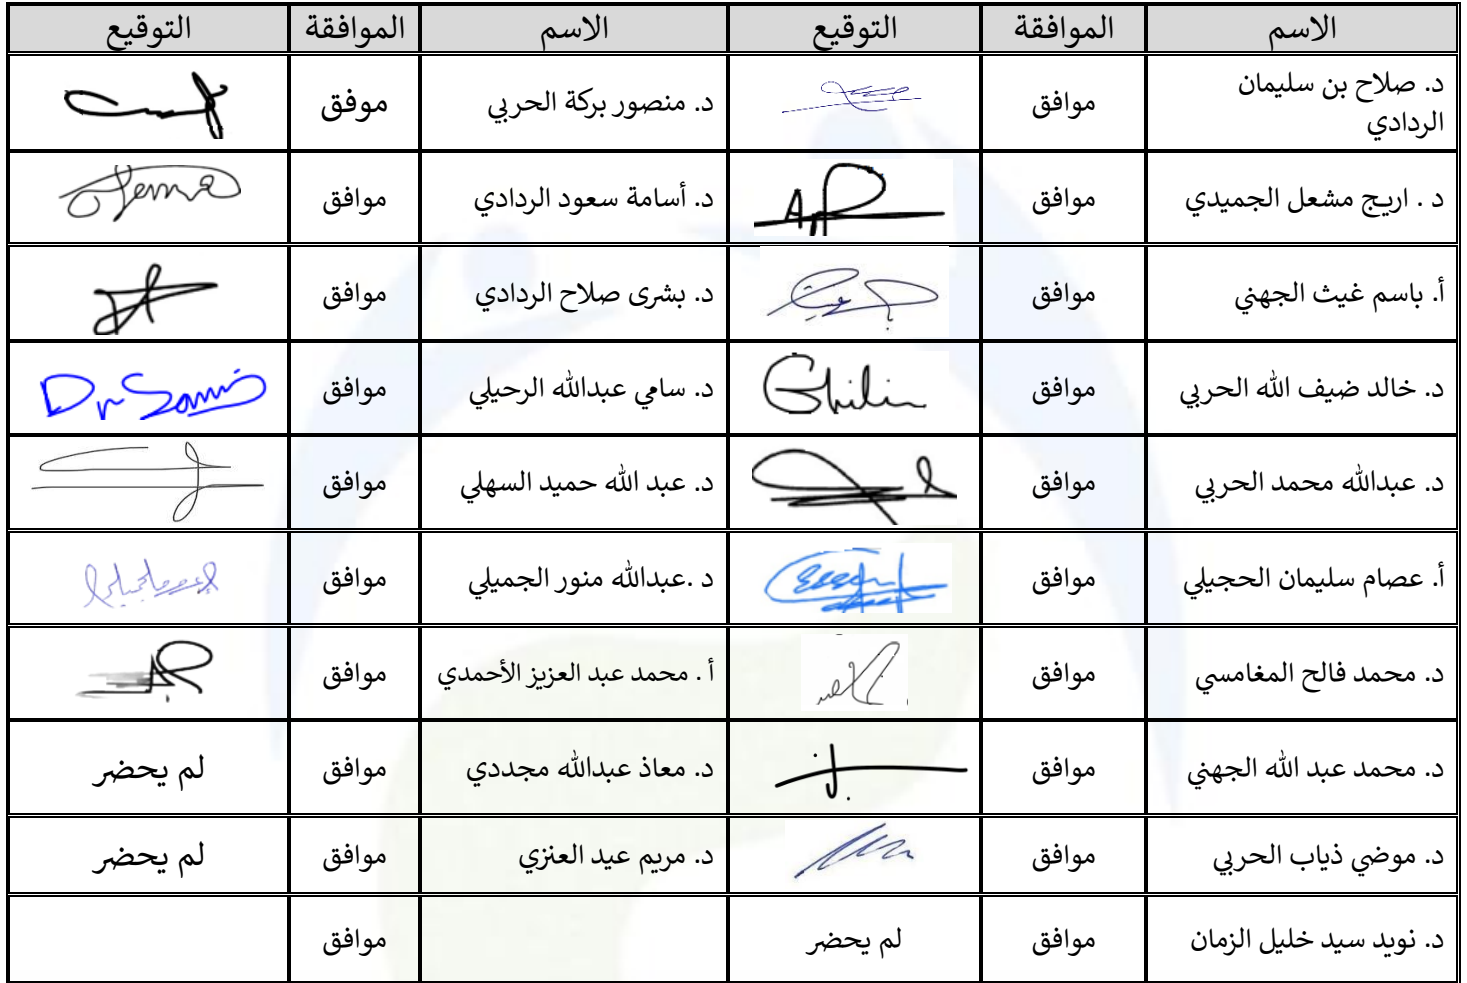 الاسم الموافقة التوقيع الاسم الموافقة التوقيع
د. صلاح بن سليمان
الردادي
موافق د. منصور بركة الحربي موفق
د . اريج مشعل الجميدي موافق د. أسامة سعود الردادي موافق
أ. باسم غيث الجهني موافق د. بشرى صلاح الردادي موافق
د. خالد ضيف الله الحربي موافق د. سامي عبدالله الرحيلي موافق Dr Sami
د. عبدالله محمد الحربي موافق د. عبد الله حميد السهلي موافق
أ. عصام سليمان الحجيلي موافق د .عبدالله منور الجميلي موافق
د. محمد فالح المغامسي موافق أ . محمد عبد العزيز الأحمدي موافق
د. محمد عبد الله الجهني موافق د. معاذ عبدالله مجددي موافق لم يحضر
د. موضي ذياب الحربي موافق د. مريم عيد العنزي موافق لم يحضر
د. نويد سيد خليل الزمان موافق لم يحضر موافق